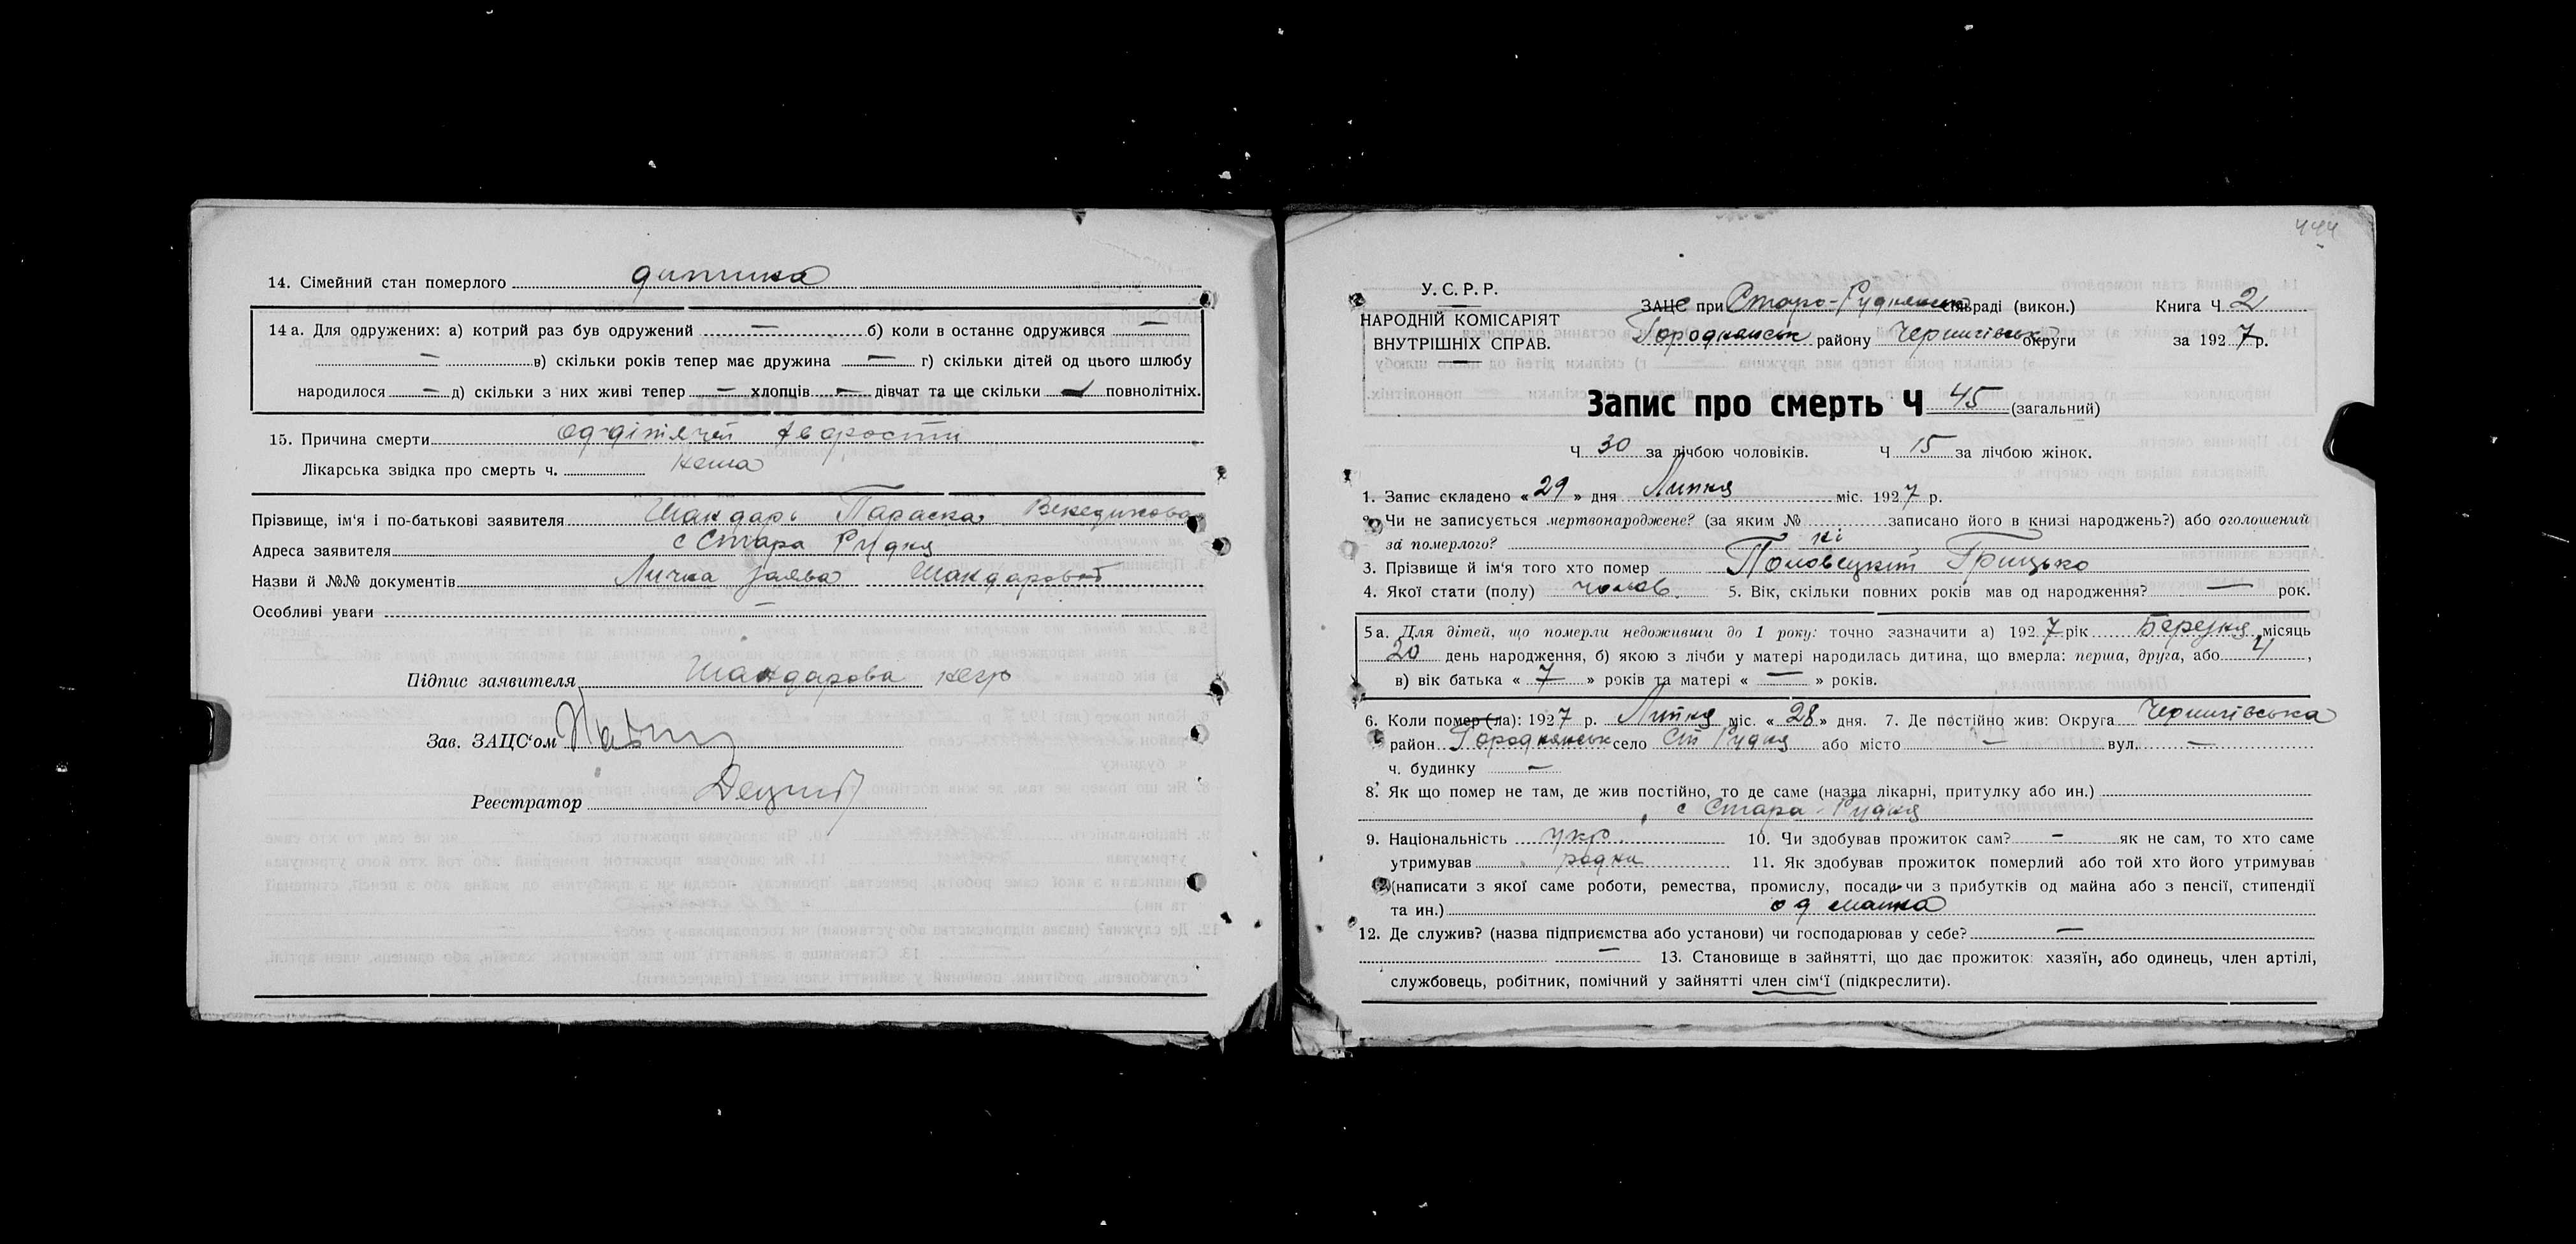 14. Сімейний стан померлого дитина
14 а. Для одружених: а) котрий раз був одружений — б) коли в останнє одружився —
— в) скільки років тепер має дружина — г) скільки дітей од цього шлюбу
народилося — д) скільки з них живі тепер — хлопців — дівчат та ще скільки — повнолітніх.
15. Причина смерти од дітячей хворости
Лікарська звідка про смерть ч. нема
Прізвище, ім'я і по-батькові заявителя Шандарь Параска
Адреса заявителя с Стара Рудня
Назви й №№ документів Лична заява Шандаровой
Особливі уваги —
Підпис заявителя Шандарова
Зав. ЗАЦС'ом
Реєстратор
444
У. С. Р. Р.
НАРОДНІЙ КОМІСАРІЯТ
ВНУТРІШНІХ СПРАВ.
ЗАЦС при Старо-Руднянськ сільраді (викон.)
Городнянськ району Чернигівськ округи
Книга Ч. 2
за 1927 р.
Запис про смерть Ч 45 (загальний)
Ч 30 за лічбою чоловіків. Ч 15 за лічбою жінок.
1. Запис складено «29» дня Липня міс. 1927 р.
2. Чи не записується мертвонароджене? (за яким № записано його в книзі народжень?) або оголошений
за померлого? ні
3. Прізвище й ім'я того хто помер Половецкий Грицько
4. Якої стати (полу) чолов. 5. Вік, скільки повних років мав од народження? — рок.
5 а. Для дітей, що померли недоживши до 1 року: точно зазначити а) 1927 рік Березня місяць
20 день народження, б) якою з лічби у матері народилась дитина, що вмерла: перша, друга, або 4,
в) вік батька « 7 » років та матері « — » років.
6. Коли помер (ла): 1927 р. Липня міс. «28» дня. 7. Де постійно жив: Округа Чернигівська
район Городнянськ село Ст Рудня або місто — вул. —
ч. будинку —
8. Як що помер не там, де жив постійно, то де саме (назва лікарні, притулку або ин.)
с Стара-Рудня
9. Національність укр. 10. Чи здобував прожиток сам? — як не сам, то хто саме
утримував родня 11. Як здобував прожиток померлий або той хто його утримував
(написати з якої саме роботи, ремества, промислу, посади чи з прибутків од майна або з пенсії, стипендії
та ин.) од майна
12. Де служив? (назва підприємства або установи) чи господарював у себе? —
— 13. Становище в зайнятті, що дає прожиток: хазяїн, або одинець, член артілі,
службовець, робітник, помічний у зайнятті член сім'ї (підкреслити).